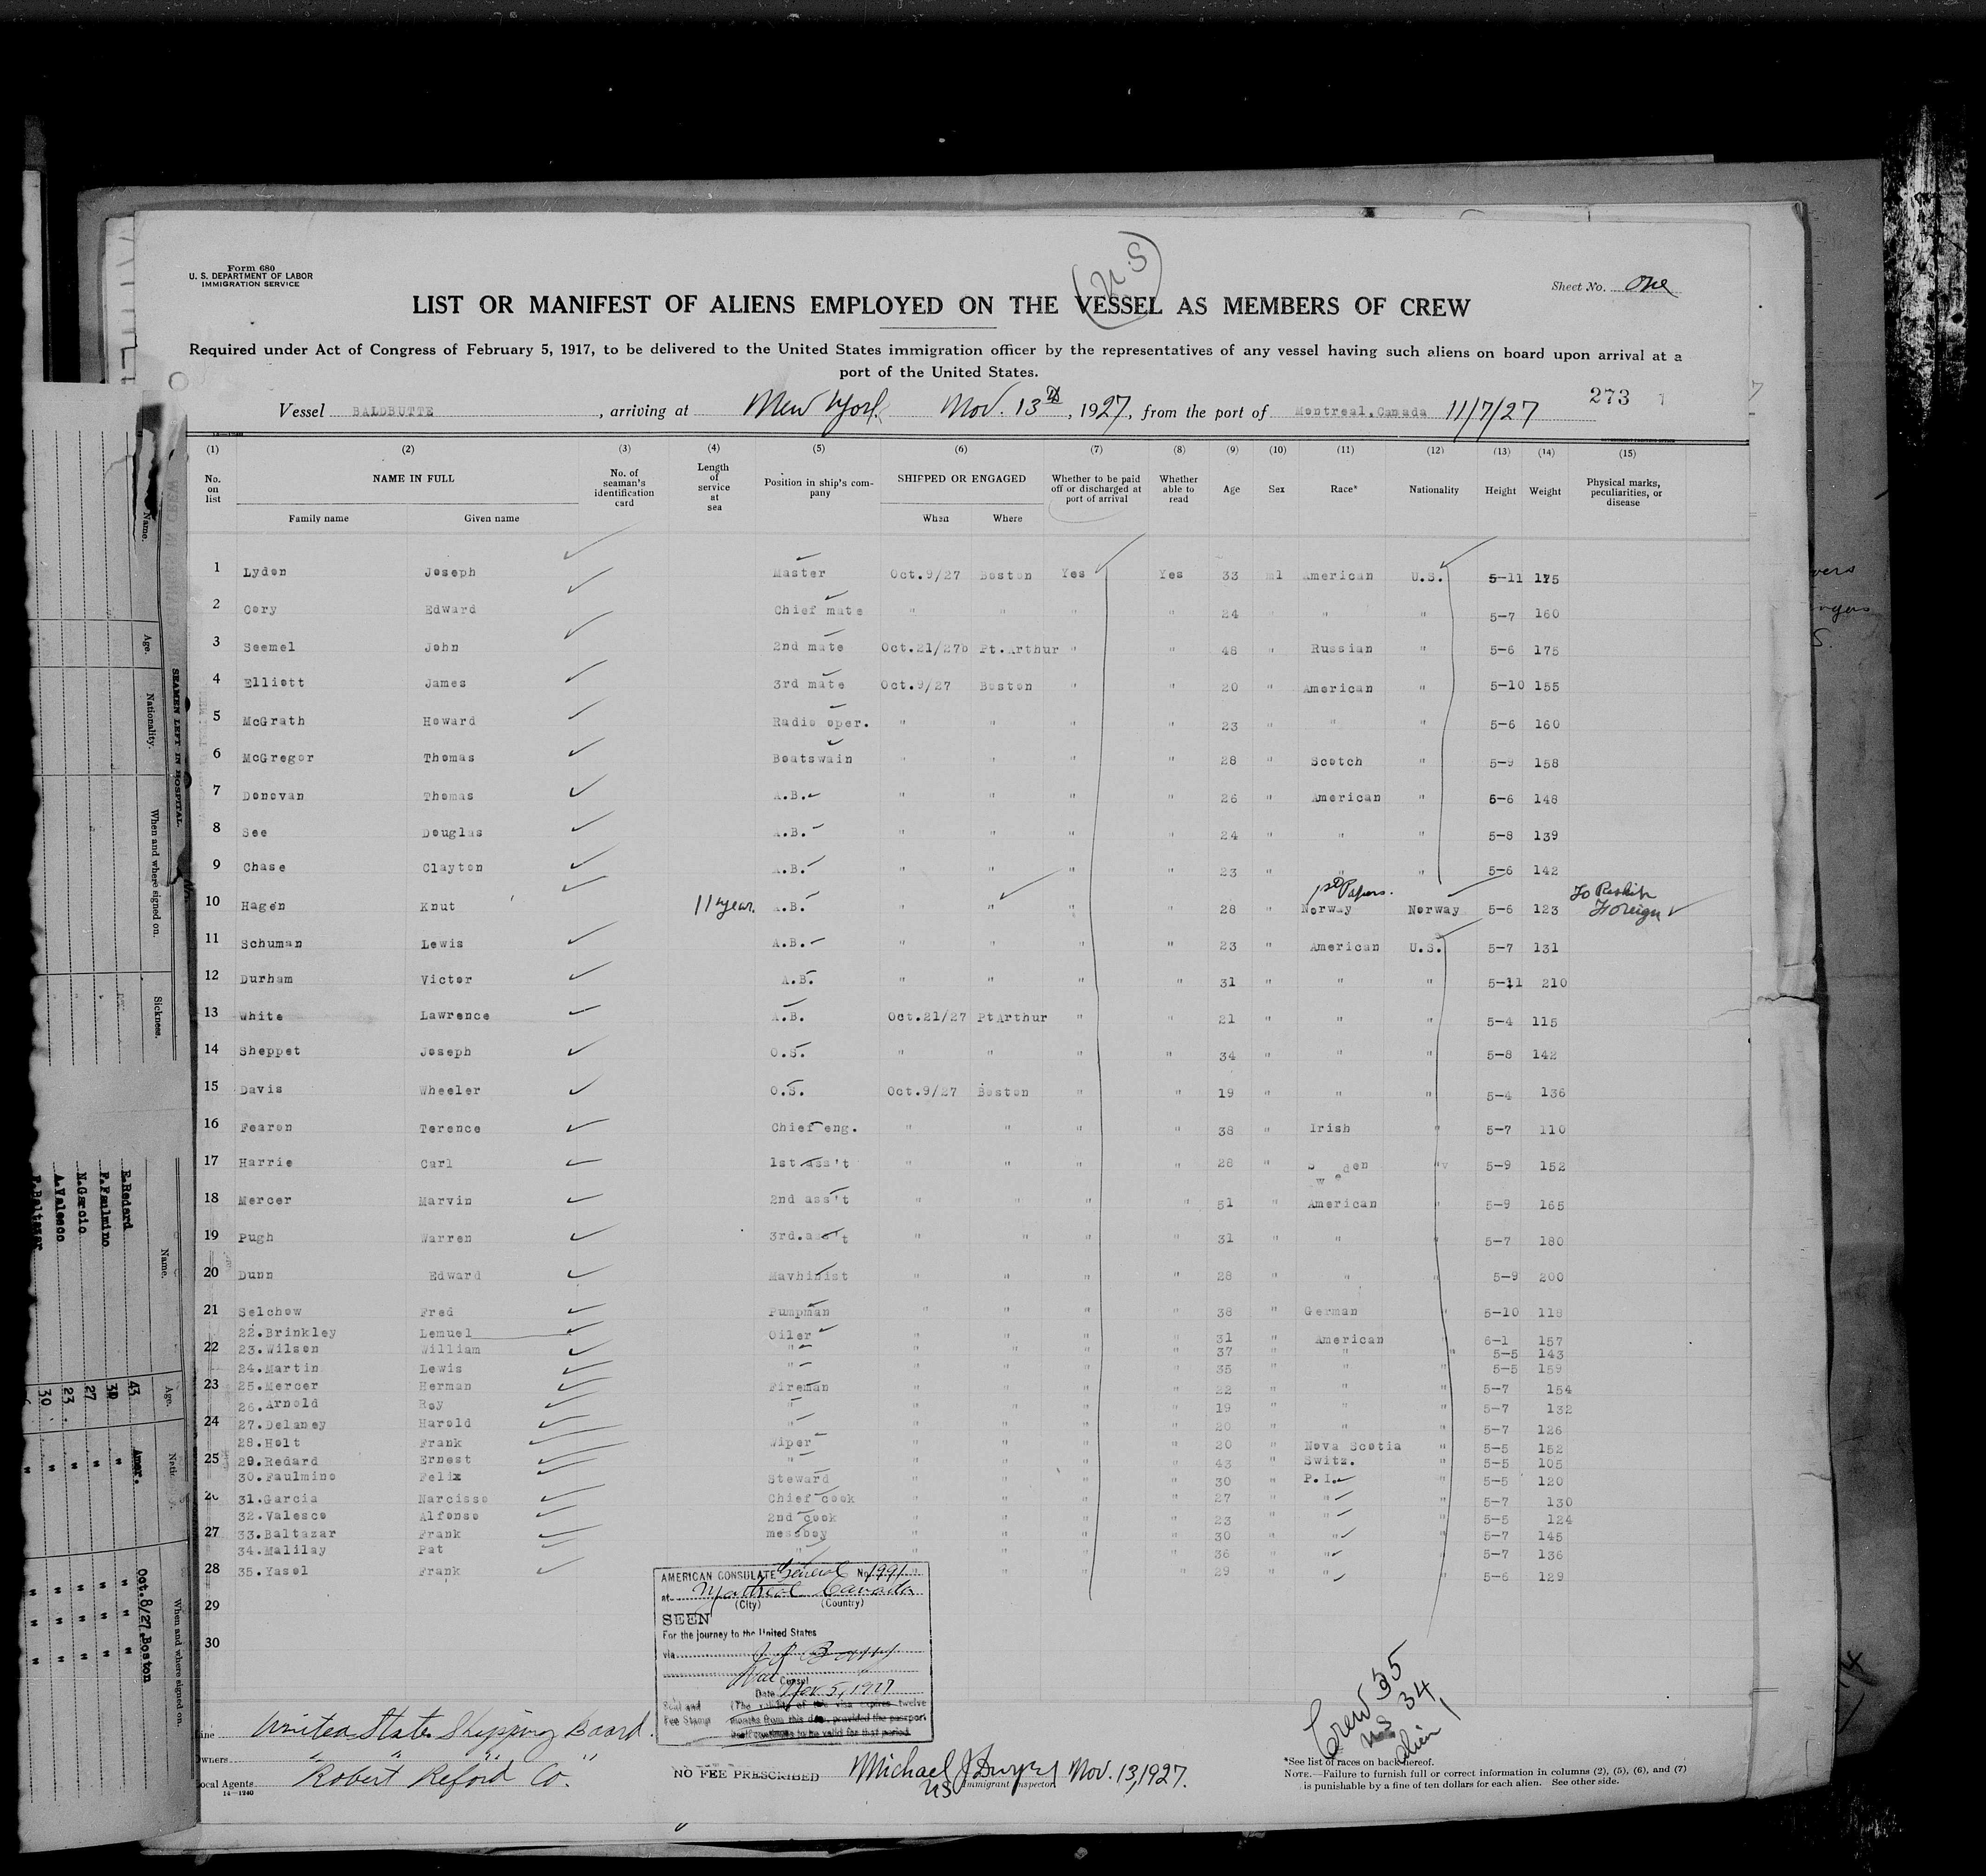 Form 680
U. S. DEPARTMENT OF LABOR
IMMIGRATION SERVICE
(U.S)
Sheet No. One
LIST OR MANIFEST OF ALIENS EMPLOYED ON THE VESSEL AS MEMBERS OF CREW
Required under Act of Congress of February 5, 1917, to be delivered to the United States immigration officer by the representatives of any vessel having such aliens on board upon arrival at a
port of the United States.
Vessel BALDBUTTE, arriving at New York Nov. 13th, 1927, from the port of Montreal,Canada 11/7/27 273
(1) (2) (3) (4) (5) (6) (7) (8) (9) (10) (11) (12) (13) (14) (15)
No. on list NAME IN FULL No. of seaman's identification card Length of service at sea Position in ship's company SHIPPED OR ENGAGED Whether to be paid off or discharged at port of arrival Whether able to read Age Sex Race* Nationality Height Weight Physical marks, peculiarities, or disease
Family name Given name When Where
1 Lydon Joseph Master Oct.9/27 Boston Yes Yes 33 ml American U.S. 5-11 175
2 Cory Edward Chief mate " " " " 24 " " " 5-7 160
3 Seemel John 2nd mate Oct.21/27b Pt.Arthur " " 48 " Russian " 5-6 175
4 Elliott James 3rd mate Oct.9/27 Boston " " 20 " American " 5-10 155
5 McGrath Howard Radio oper. " " " " 23 " " 5-6 160
6 McGregor Thomas Boatswain " " " " 28 " Scotch " 5-9 158
7 Donovan Thomas A.B. " " " " 26 " American " 5-6 148
8 See Douglas A.B. " " " " 24 " " " 5-8 139
9 Chase Clayton A.B. " " " " 23 " " " 5-6 142
1st Papers. To Reship
10 Hagen Knut 11 year. A.B. " " " " 28 " Norway Norway 5-6 123 Foreign
11 Schuman Lewis A.B. " " " " 23 " American U.S. 5-7 131
12 Durham Victor A.B. " " " " 31 " " " 5-11 210
13 White Lawrence A.B. Oct.21/27 PtArthur " " 21 " " " 5-4 115
14 Sheppet Joseph O.S. " " " " 34 " " " 5-8 142
15 Davis Wheeler O.S. Oct.9/27 Boston " " 19 " " " 5-4 136
16 Fearon Terence Chief eng. " " " " 38 " Irish " 5-7 110
17 Harrie Carl 1st ass't " " " " 28 " Sweden " 5-9 152
18 Mercer Marvin 2nd ass't " " " " 51 " American " 5-9 165
19 Pugh Warren 3rd.ass't " " " " 31 " " " 5-7 180
20 Dunn Edward Mavhinist " " " " 28 " " " 5-9 200
21 Selchow Fred Pumpman " " " " 38 " German " 5-10 118
22.Brinkley Lemuel Oiler " " " " 31 " American " 6-1 157
22 23.Wilson William " " " " " 37 " " " 5-5 143
24.Martin Lewis " " " " " 35 " " 5-5 159
23 25.Mercer Herman Fireman " " " " 22 " " " 5-7 154
26.Arnold Roy " " " " " 19 " " " 5-7 132
24 27.Delaney Harold " " " " " 20 " " " 5-7 126
28.Holt Frank Wiper " " " " 20 " Nova Scotia " 5-5 152
25 29.Redard Ernest " " " " " 43 " Switz. " 5-5 105
30.Faulmino Felix Steward " " " " 30 " P.I. " 5-5 120
26 31.Garcia Narcisso Chief cook " " " " 27 " " " 5-7 130
32.Valesco Alfonso 2nd cook " " " " 23 " " " 5-5 124
27 33.Baltazar Frank messboy " " " " 30 " " " 5-7 145
34.Malilay Pat " " " " " 36 " " " 5-7 136
28 35.Yasol Frank " " " " 29 " " " 5-6 129
29
30
AMERICAN CONSULATE General No. 1991
at Montreal Canada
(City) (Country)
SEEN
For the journey to the United States
via
Consul
Date Nov. 5, 1927
Seal and Fee Stamp
(The validity of this visa expires twelve
months from this date, provided the passport
itself continues to be valid for that period.
NO FEE PRESCRIBED
Crew 35
US 34
alien 1
Line United States Shipping Board.
Owners " " " "
Local Agents Robert Reford Co.
14—1240
Michael J Dwyer Nov. 13, 1927.
US Immigrant Inspector
*See list of races on back hereof.
NOTE.—Failure to furnish full or correct information in columns (2), (5), (6), and (7)
is punishable by a fine of ten dollars for each alien. See other side.
SEAMEN LEFT IN HOSPITAL.
Name. Age. Nationality. When and where signed on. Sickness.
Name. Age. When and where signed on.
R.Redard 43 Amer. Oct.8/27.Boston
F.Faulmino 30 " " " "
N.Garcio 27 " " " "
A.Valesco 23 " " " "
F.Baltazar 30 " " " "